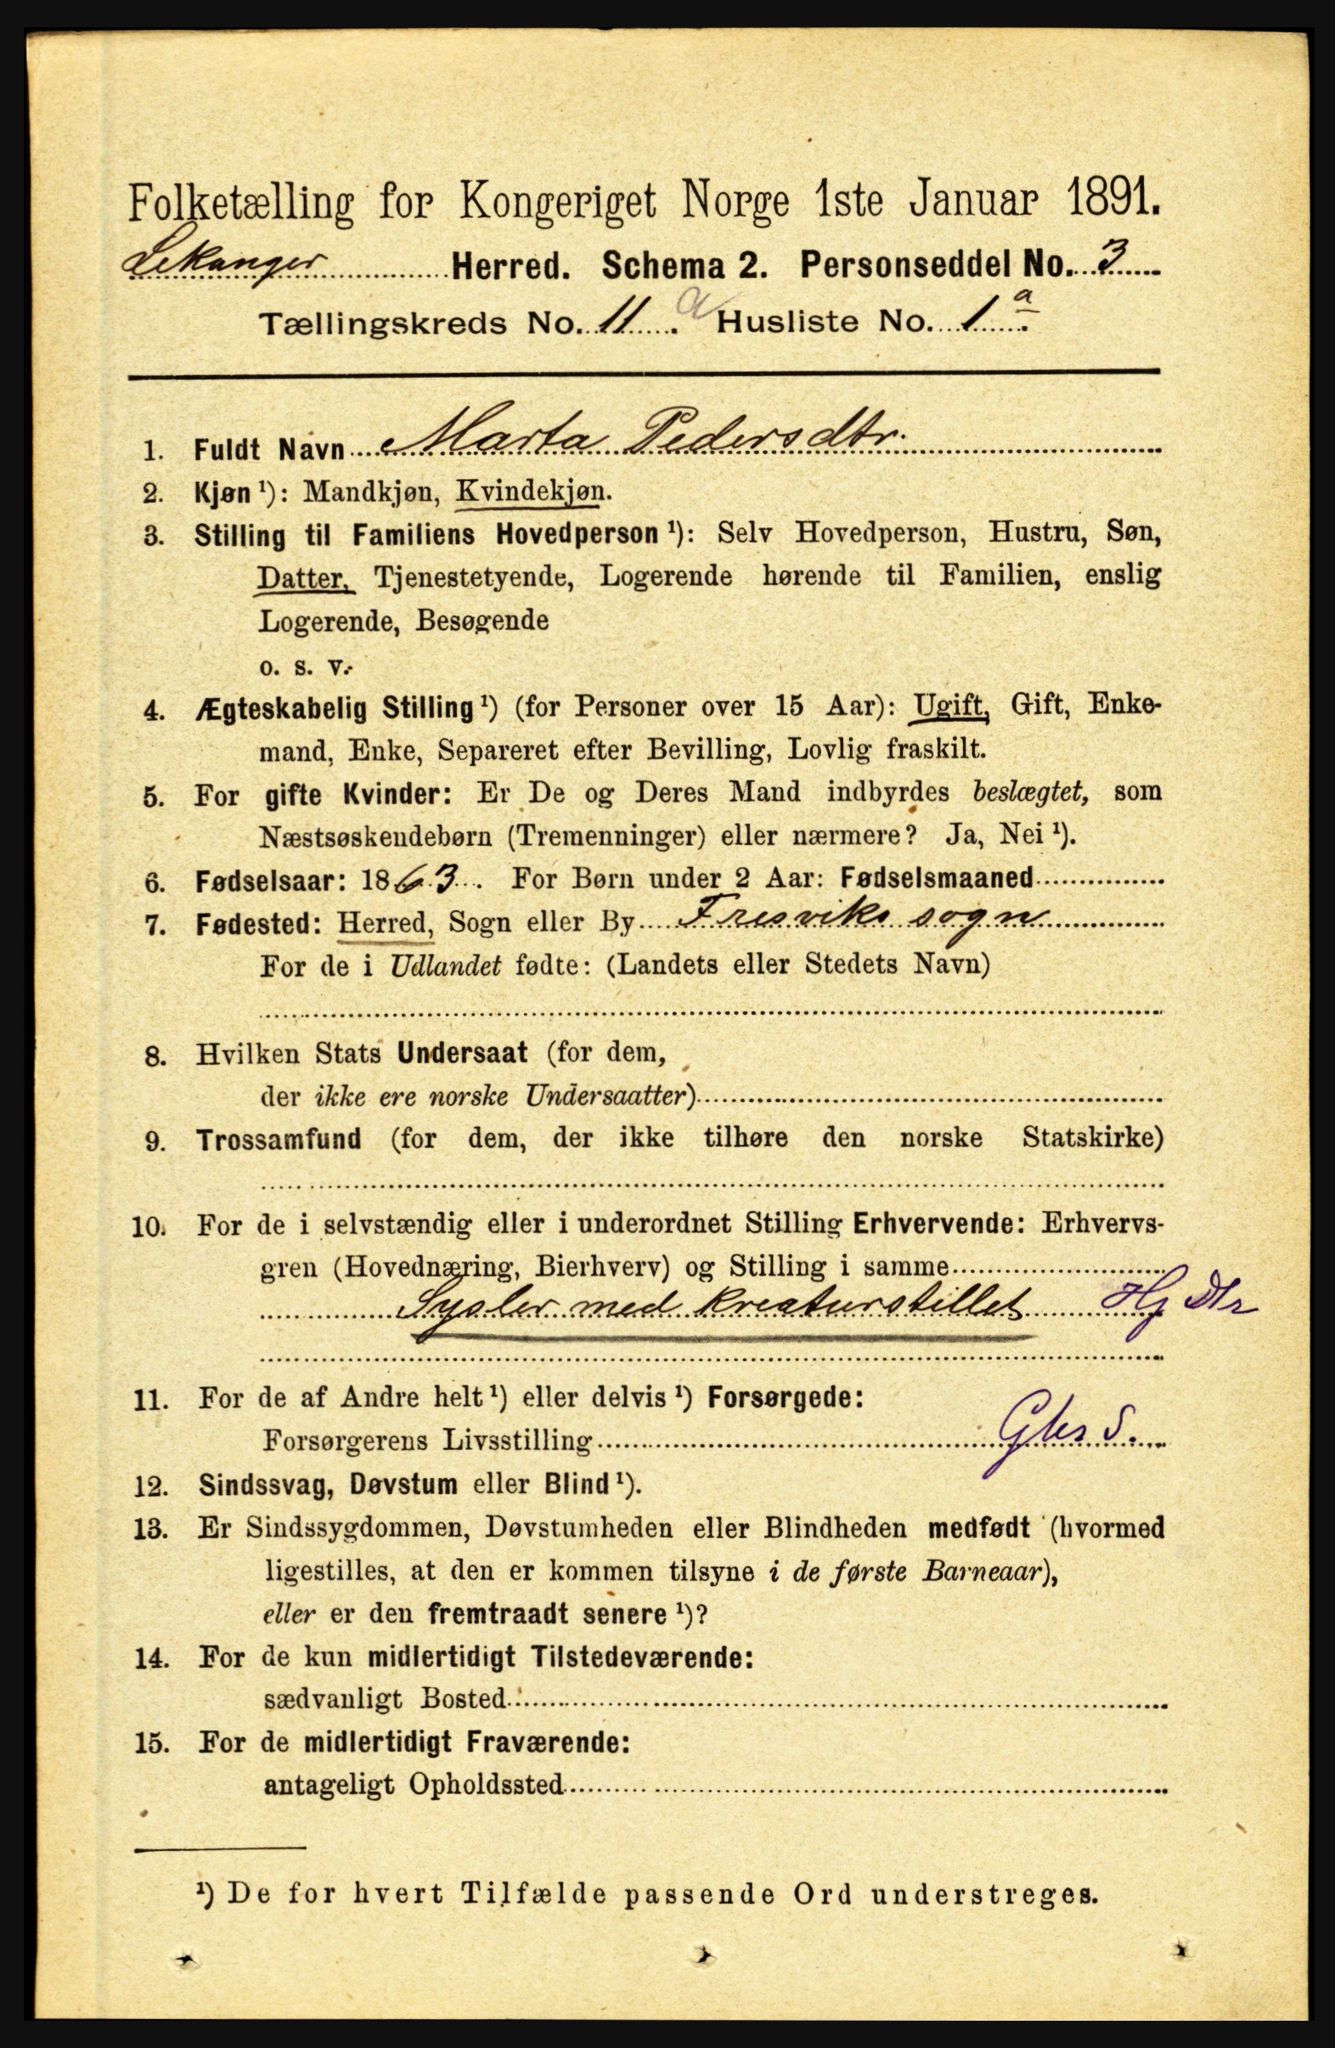 Folketælling for Kongeriget Norge 1ste Januar 1891.
Lekanger Herred. Schema 2. Personseddel No. 3
Tællingskreds No. 11 a. Husliste No. 1 a.
1. Fuldt Navn Marta Pedersdtr.
2. Kjøn ¹): Mandkjøn, Kvindekjøn.
3. Stilling til Familiens Hovedperson ¹): Selv Hovedperson, Hustru, Søn,
Datter, Tjenestetyende, Logerende hørende til Familien, enslig
Logerende, Besøgende
o. s. v.
4. Ægteskabelig Stilling ¹) (for Personer over 15 Aar): Ugift, Gift, Enke-
mand, Enke, Separeret efter Bevilling, Lovlig fraskilt.
5. For gifte Kvinder: Er De og Deres Mand indbyrdes beslægtet, som
Næstsøskendebørn (Tremenninger) eller nærmere? Ja, Nei ¹).
6. Fødselsaar: 1863. For Børn under 2 Aar: Fødselsmaaned
7. Fødested: Herred, Sogn eller By Fresviks sogn
For de i Udlandet fødte: (Landets eller Stedets Navn)
8. Hvilken Stats Undersaat (for dem,
der ikke ere norske Undersaatter)
9. Trossamfund (for dem, der ikke tilhøre den norske Statskirke)
10. For de i selvstændig eller i underordnet Stilling Erhvervende: Erhvervs-
gren (Hovednæring, Bierhverv) og Stilling i samme
Sysler med kreaturstellet Hj Dtr
11. For de af Andre helt ¹) eller delvis ¹) Forsørgede:
Forsørgerens Livsstilling Gbr S.
12. Sindssvag, Døvstum eller Blind ¹).
13. Er Sindssygdommen, Døvstumheden eller Blindheden medfødt (hvormed
ligestilles, at den er kommen tilsyne i de første Barneaar),
eller er den fremtraadt senere ¹)?
14. For de kun midlertidigt Tilstedeværende:
sædvanligt Bosted
15. For de midlertidigt Fraværende:
antageligt Opholdssted
¹) De for hvert Tilfælde passende Ord understreges.